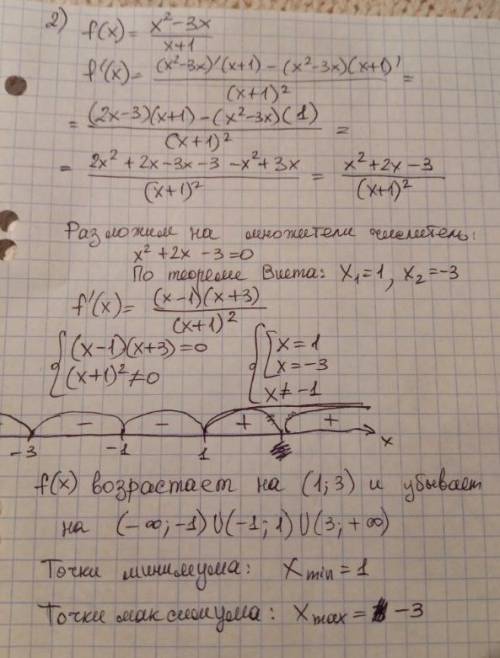 2) f(x) = (x² - 3x)/(x+1)
f'(x) = ((x²-3x)'(x+1) - (x²-3x)(x+1)')/(x+1)² =
= ((2x-3)(x+1) - (x²-3x)(1))/(x+1)² =
= (2x² + 2x - 3x - 3 - x² + 3x)/(x+1)² = (x² + 2x - 3)/(x+1)²
Разложим на множители числитель:
x² + 2x - 3 = 0
По теореме Виета: x₁ = 1, x₂ = -3
f'(x) = ((x-1)(x+3))/(x+1)²
{ (x-1)(x+3) = 0 { [ x = 1
{ (x+1)² ≠ 0 { [ x = -3
{ x ≠ -1
+ - - + +
-3 -1 1 x
f(x) возрастает на (1; 3) и убывает
на (-∞; -1) ∪ (-1; 1) ∪ (3; +∞)
Точки минимума: x min = 1
Точки максимума: x max = -3